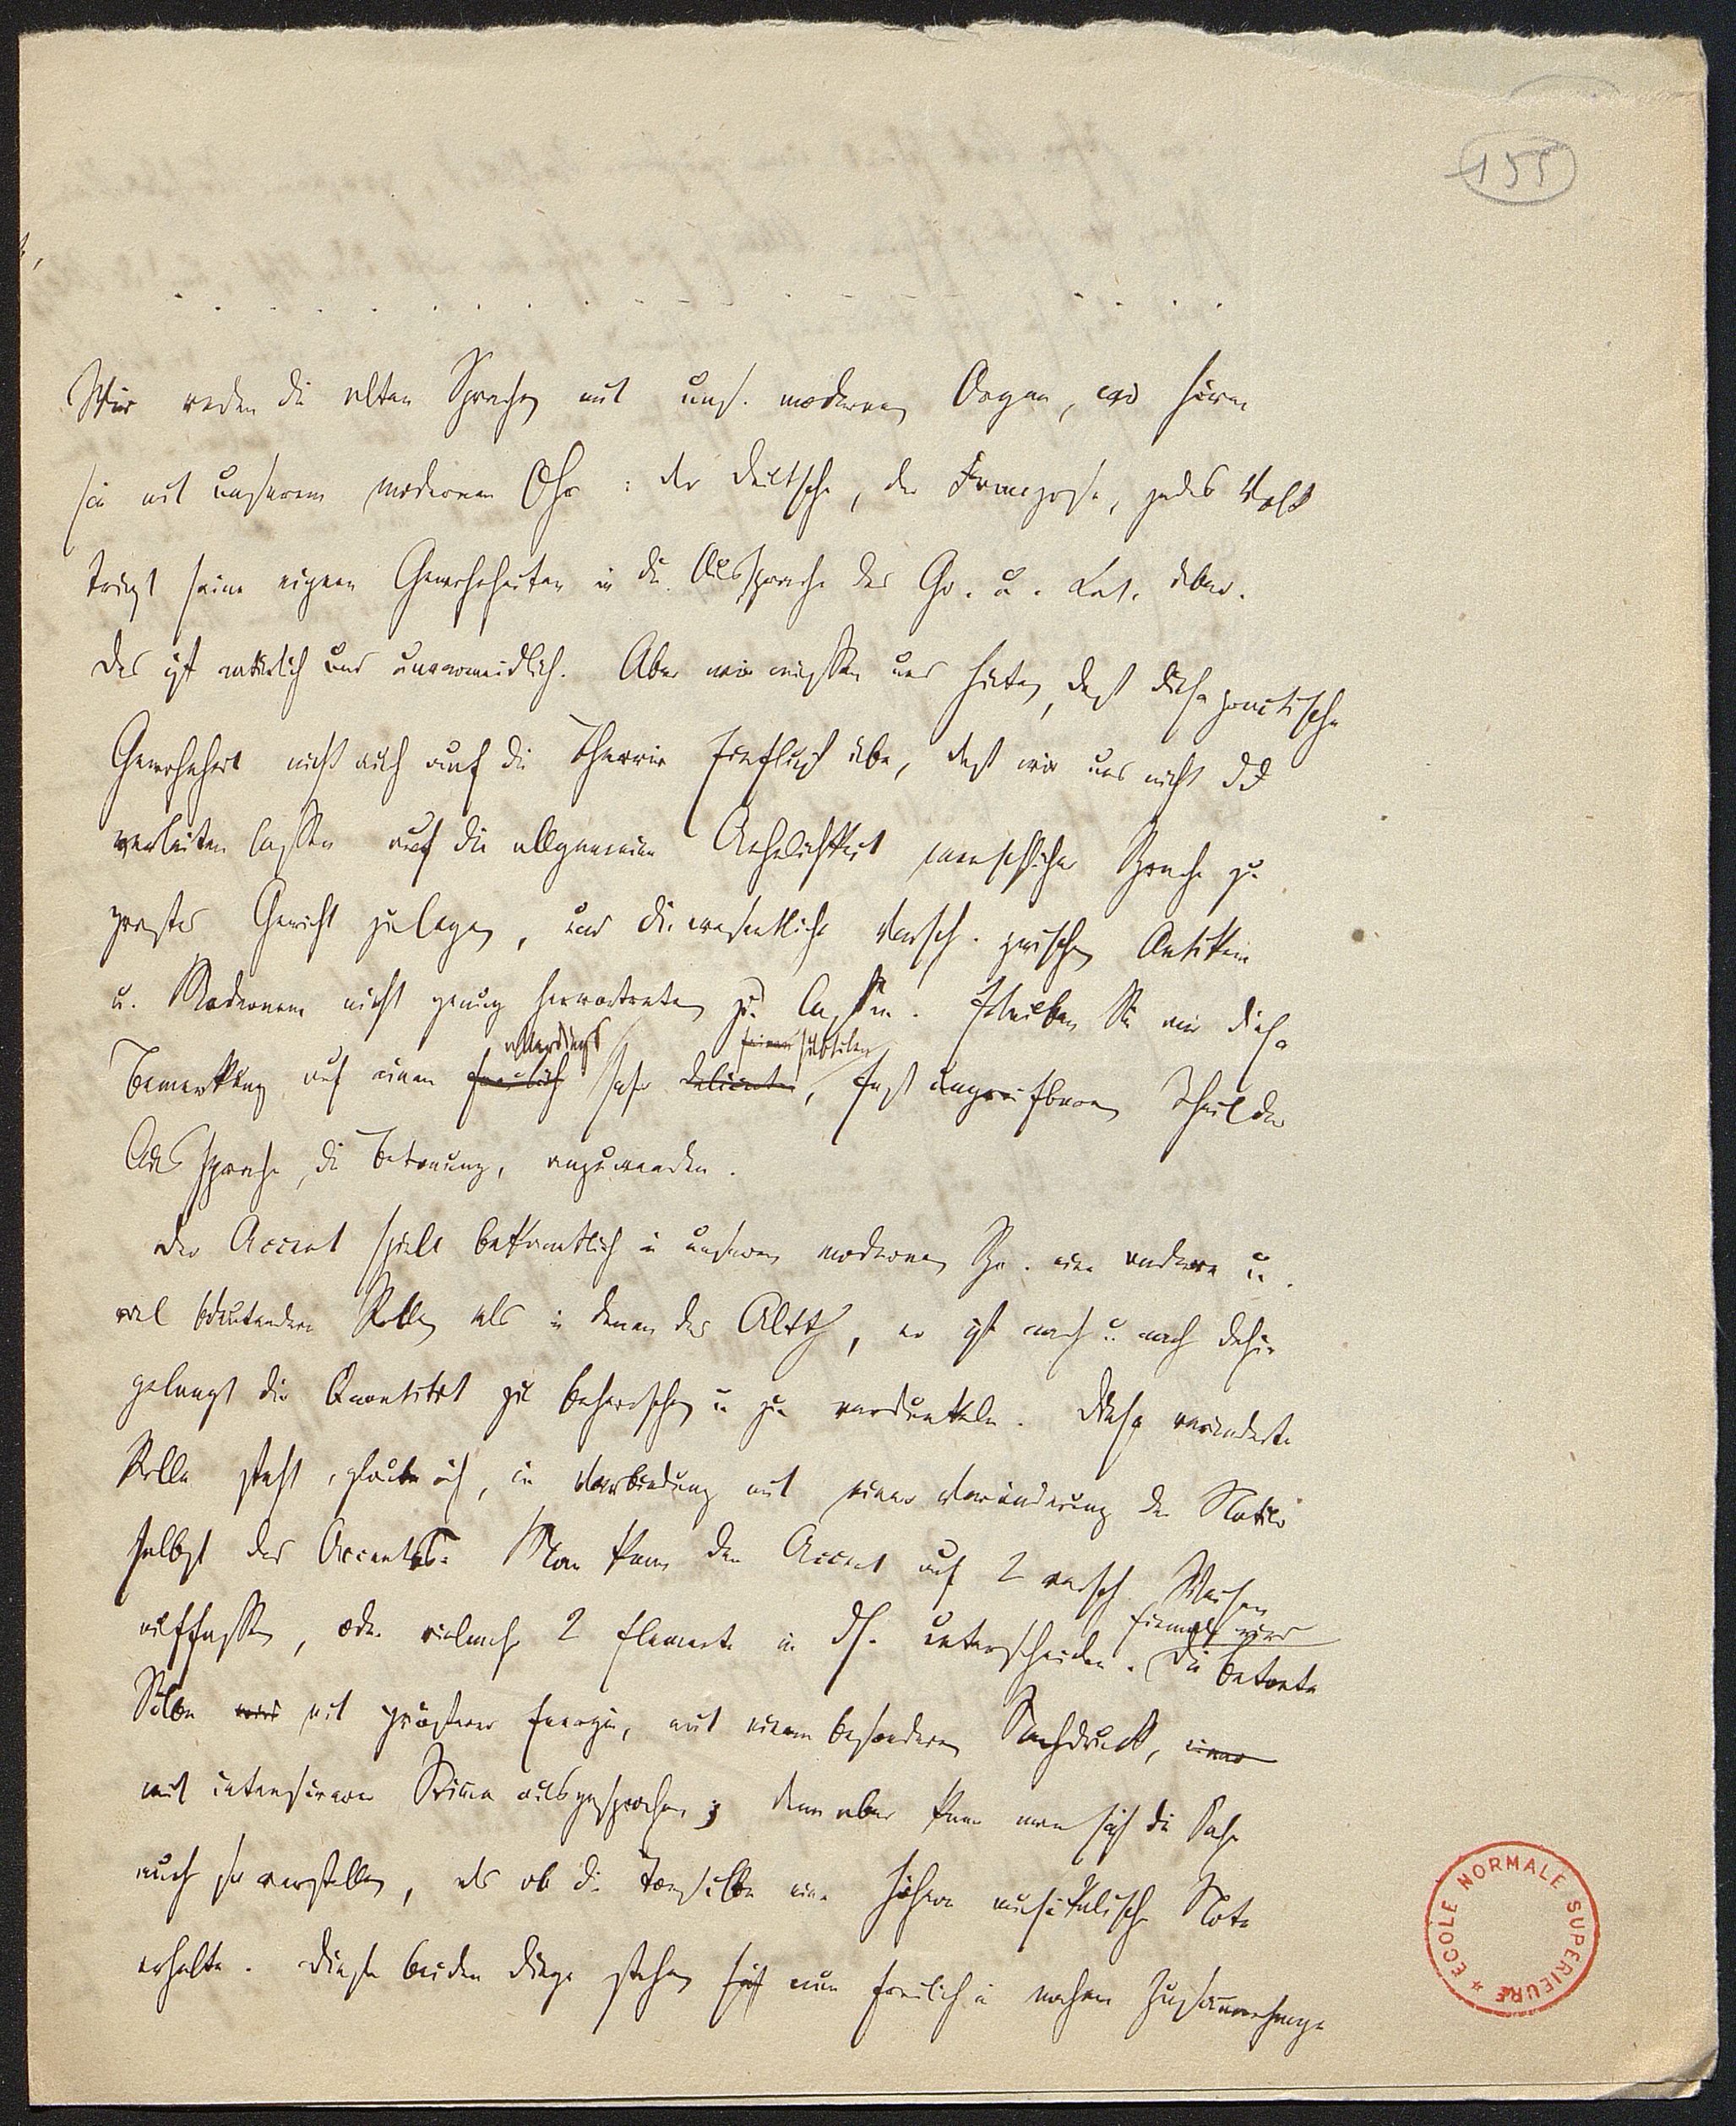 155
Wir reden die alten Sprachen mit uns. modernen Organ, und hören
sie mit unserem modernen Ohr : der Deutsche, der Franzose, jedes Volk
trägt seine eignen Gewohnheiten in die Aussprache des Gr. u. Lat. über.
Das ist natürlich und unvermeidlich. Aber wir müssen uns hüten, daß diese practische
Gewohnheit nicht auch auf die Theorie Einfluß übe, daß wir uns nicht
verleiten lassen auf die allgemeine Aehnlichkeit menschlicher Sprache zu
großes Gewicht zu legen, und die wesentliche Versch. zwischen Antikem
u. Modernem nicht genug hervortreten zu lassen. Erlauben Sie mir diese
allerdings feinen subtilen
Bemerkung auf einen freilich sehr delicaten, fast ungreifbaren Theil der
Aussprache, die Betonung, anzuwenden.
Der Accent spielt bekanntlich in unseren modernen Spr. eine andere u.
viel bedeutendere Rolle als in denen des Altth, er ist nach u. nach dahin
gelangt die Quantität zu beherrschen u. zu verdunkeln. Diese veränderte
Rolle steht, glaube ich, in Verbindung mit einer Veränderung der Natur
selbst des Accentes. Man kann den Accent auf 2 versch. Weisen
auffassen, oder vielmehr 2 Elemente in ds. unterscheiden. Einmal wird die betonte
Silbe wird mit größerer Energie, mit einem besonderen Nachdruck, einer
mit intensiverer Stimme ausgesprochen; dann aber kann man sich die Sache
auch so vorstellen, als ob die Tonsilbe eine höhere musikalische Note
erhalte. Diese beiden Dinge stehen sich nun freilich in nahem Zusammenhange
ECOLE NORMALE SUPÉRIEURE